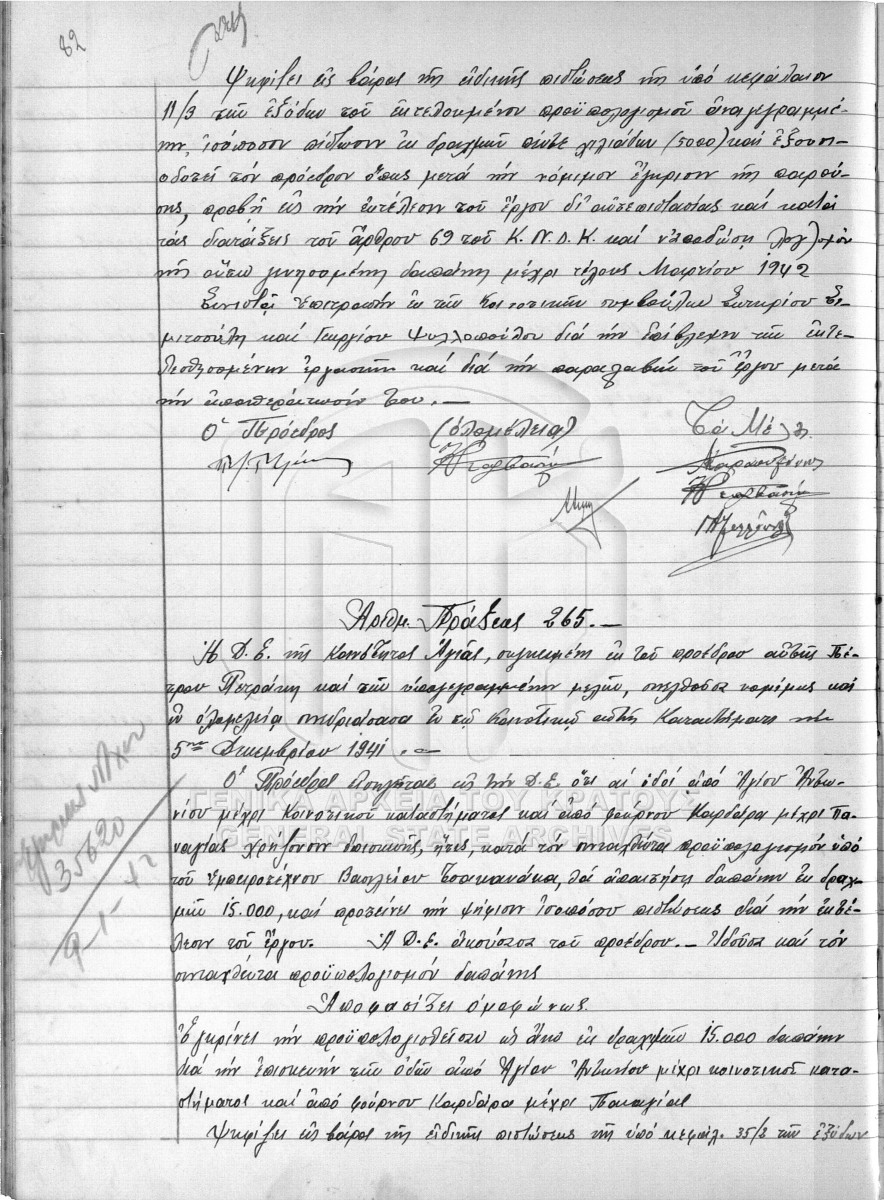 82
Ψηφίζει εἰς βάρος τῆς εἰδικῆς πιστώσεως τῆς ὑπό κεφάλαιον
11/3 τῶν ἐξόδων τοῦ ἐκτελουμένου προϋπολογισμοῦ ἀναγεγραμμέ-
νην, ἰσόποσον πίστωσιν ἐκ δραχμῶν πέντε χιλιάδων (5000) καί ἐξουσι-
οδοτεῖ τόν πρόεδρον ὅπως μετά τήν νόμιμον ἔγκρισιν τῆς παρού-
σης, προβῇ εἰς τήν ἐκτέλεσιν τοῦ ἔργου δι' αὐτεπιστασίας καί κατά
τάς διατάξεις τοῦ ἄρθρου 69 τοῦ Κ.Ν.Δ.Κ. καί ν' ἀποδώσῃ λογ/σμόν
τῆς οὕτω γενησομένης δαπάνης μέχρι τέλους Μαρτίου 1942
Συνιστᾷ ἐπιτροπήν ἐκ τῶν Κοινοτικῶν συμβούλων Σωτηρίου
καί Γεωργίου Ψυλλοπούλου διά τήν ἐπίβλεψιν τῶν ἐκτε-
λεσθησομένων ἐργασιῶν καί διά τήν παραλαβήν τοῦ ἔργου μετά
τήν ἀποπεράτωσίν του. —
Ὁ Πρόεδρος (ὁλομέλεια) Τά Μέλη
Ἀριθμ. Πράξεως 265. —
Ἡ Δ.Ε. τῆς Κοινότητος Ἁγιᾶς, συγκειμένη ἐκ τοῦ προέδρου αὐτῆς Πέ-
τρου Πετράκη καί τῶν ὑπογεγραμμένων μελῶν, συνελθοῦσα νομίμως καί
ἐν ὁλομελείᾳ συνεδριάσασα ἐν τῷ Κοινοτικῷ αὐτῆς Καταστήματι τήν
5ην Δεκεμβρίου 1941. —
Ὁ Πρόεδρος εἰσηγεῖται εἰς τήν Δ.Ε. ὅτι αἱ ὁδοί ἀπό Ἁγίου Ἀντω-
νίου μέχρι Κοινοτικοῦ καταστήματος καί ἀπό φούρνου Καρδάρα μέχρι Πα-
ναγίας χρῄζουσιν ἐπισκευῆς, ἥτις, κατά τόν συνταχθέντα προϋπολογισμόν ὑπό
τοῦ ἐμπειροτέχνου Βασιλείου Τσακανάκα, θά ἀπαιτήσῃ δαπάνην ἐκ δραχ-
μῶν 15.000, καί προτείνει τήν ψήφισιν ἰσοπόσου πιστώσεως διά τήν ἐκτέ-
λεσιν τοῦ ἔργου. Ἡ Δ.Ε. ἀκούσασα τοῦ προέδρου. — Ἰδοῦσα καί τόν
συνταχθέντα προϋπολογισμόν δαπάνης
Ἀποφασίζει ὁμοφώνως.
Ἐγκρίνει τήν προϋπολογισθεῖσαν ὡς ἄνω ἐκ δραχμῶν 15.000 δαπάνην
διά τήν ἐπισκευήν τῶν ὁδῶν ἀπό Ἁγίου Ἀντωνίου μέχρι κοινοτικοῦ κατα-
στήματος καί ἀπό φούρνου Καρδάρα μέχρι Παναγίας
Ψηφίζει εἰς βάρος τῆς εἰδικῆς πιστώσεως τῆς ὑπό κεφάλ. 35/3 τῶν ἐξόδων
35620
9-1-42
ΓΕΝΙΚΑ ΑΡΧΕΙΑ ΤΟΥ ΚΡΑΤΟΥΣ
GENERAL STATE ARCHIVES